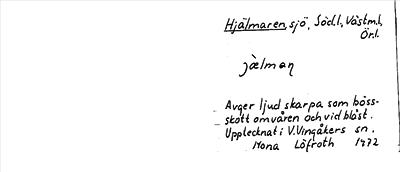 Hjälmaren, sjö, Södl, Västml,
Örl.
jälmaṇ
Avger ljud skarpa som böss-
skott om våren och vid blåst.
Upptecknat i V. Vingåkers sn.
Mona Löfroth 1972